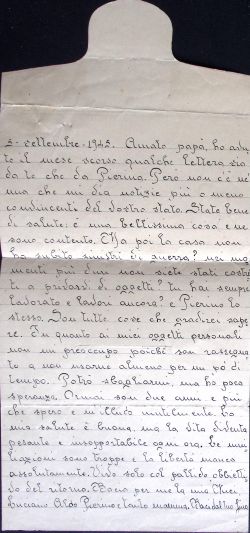 5-settembre-1945. Amato papà, ho avu
to il mese scorso qualche lettera sia
da te che da Pierina. Però non c'è n'è
una che mi dia notizie più o meno
concludenti del vostro stato. State bene
di salute; è una bellissima cosa e ne
sono contento. Ma poi la casa non
ha subito sinistri di guerra?
menti più duri non siete stati costret
ti a privarvi di oggetti? tu hai sempre
lavorato e lavori ancora? e Pierino lo
stesso. Son tutte cose che gradirei sape
re. In quanto ai miei oggetti personali
non mi preoccupo poichè son rassegna
to a non usarne almeno per un pò di
tempo. Potrò sbagliarmi, ma ho poca
speranza. Ormai son due anni e più
che spero e mi illudo inutilmente. La
mia salute è buona, ma la vita diventa
pesante e insopportabile ogni ora. Le umi
liazioni sono troppe e la libertà manca
assolutamente. Vivo solo col pallido obbietti
vo del ritorno. Bacia per me la
Luciano Aldo Pierino e tanto mamma.